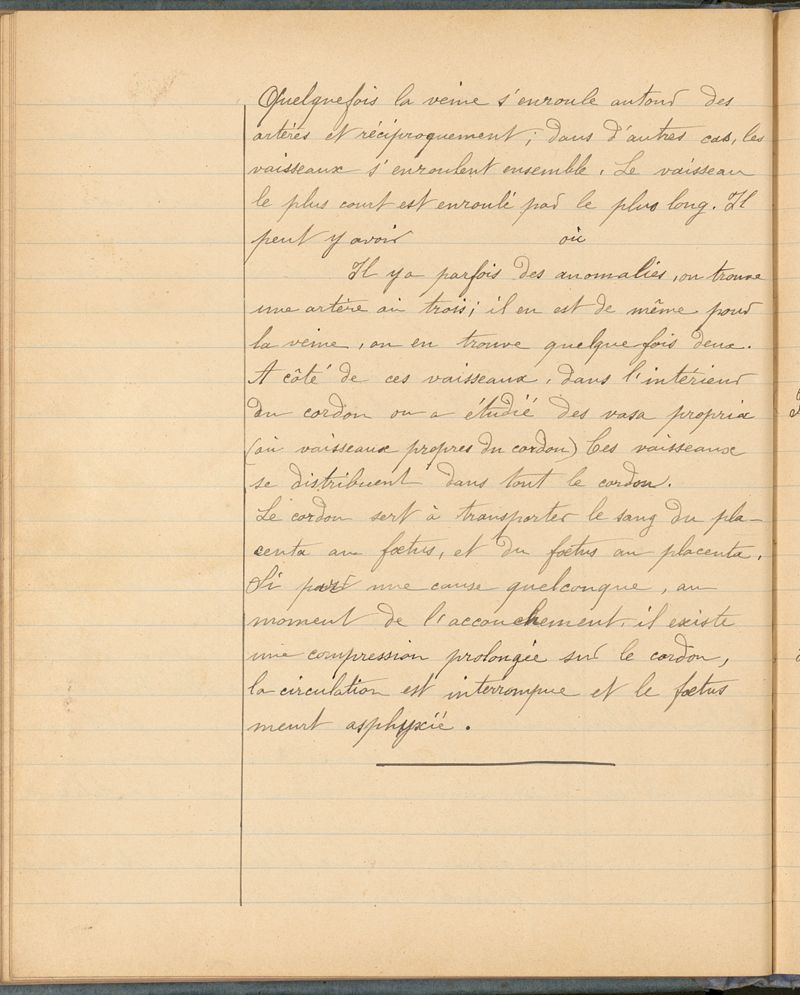 Quelquefois la veine s'enroule autour des
artères et réciproquement ; dans d'autres cas, les
vaisseaux s'enroulent ensemble. Le vaisseau
le plus court est enroulé par le plus long. Il
peut y avoir où
Il y a parfois des anomalies, on trouve
une artère où trois ; il en est de même pour
la veine, on en trouve quelque fois deux.
A côté de ces vaisseaux, dans l'intérieur
du cordon on a étudié des vasa propria
(où vaisseaux propres du cordon) Ces vaisseaux
se distribuent dans tout le cordon.
Le cordon sert à transporter le sang du pla-
centa au fœtus, et du fœtus au placenta.
Si par une cause quelconque, au
moment de l'accouchement, il existe
une compression prolongée sur le cordon,
la circulation est interrompue et le fœtus
meurt asphyxié.